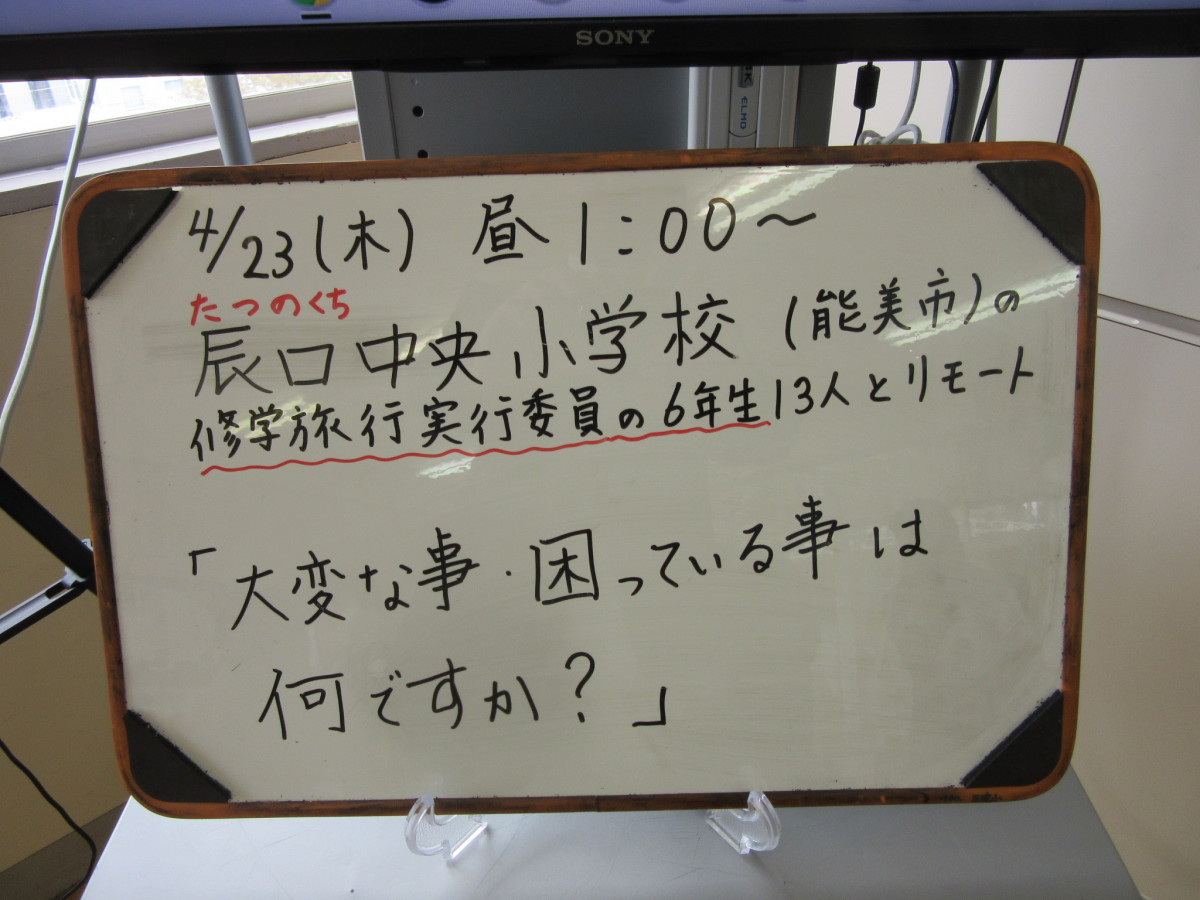 SONY
ELMO
4/23(木) 昼1:00〜
たつのくち
辰口中央小学校(能美市)の
修学旅行実行委員の6年生13人とリモート
「大変な事・困っている事は
何ですか?」